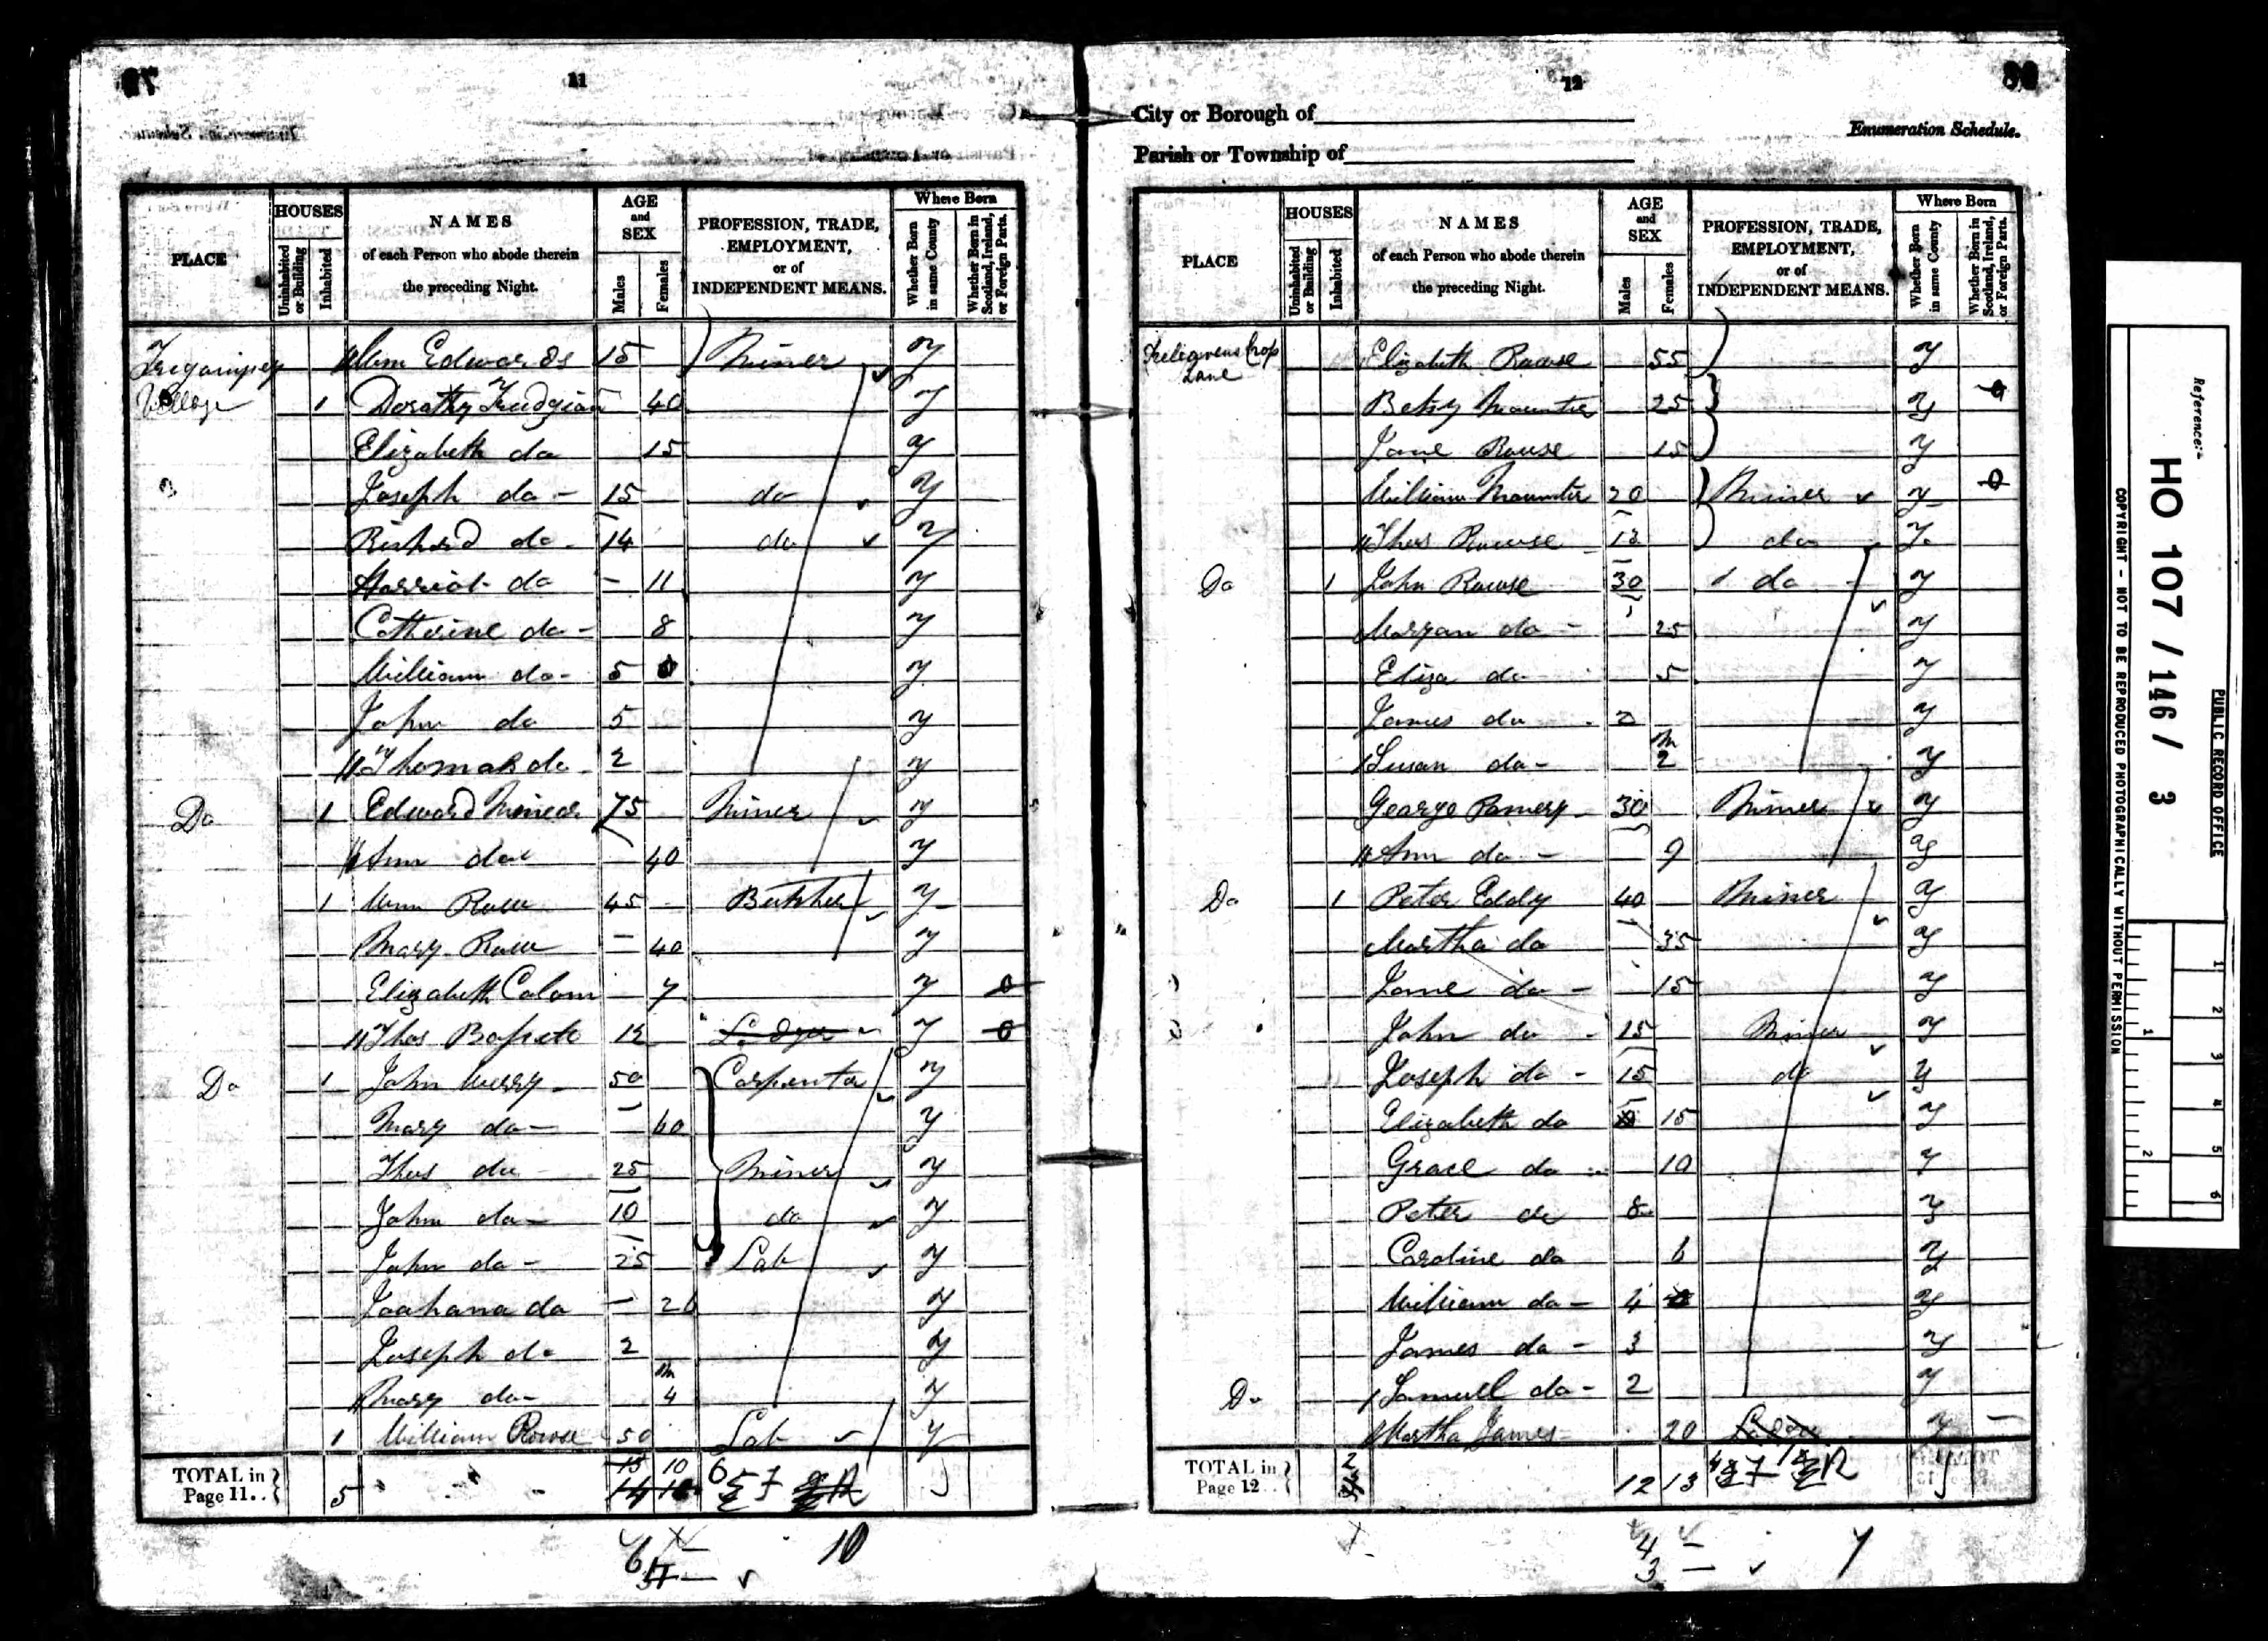 79
11
PLACE
HOUSES
Uninhabited or Building
Inhabited
NAMES
of each Person who abode therein
the preceding Night.
AGE
and
SEX
Males
Females
PROFESSION, TRADE,
EMPLOYMENT,
or of
INDEPENDENT MEANS.
Where Born
Whether Born in same County
Whether Born in Scotland, Ireland, or Foreign Parts.
Wm Edwards 15 Miner y
Village 1 Dorothy 40 y
Elizabeth do 15 y
Joseph do - 15 do y
Richard do - 14 do y
Harriot do - 11 y
Catherine do - 8 y
William do - 5 y
John do 5 y
Thomas do - 2 y
Do 1 Edward 75 Miner y
Ann do 40 y
1 Wm Rowe 45 Butcher y
Mary Rowe - 40 y
Elizabeth 7 y
Thos 12 Lodger y
Do 1 John 50 Carpenter y
Mary do - 60 y
Thos do - 25 Miner y
John do - 10 do y
John do - 25 Lab y
Joahana do - 20 y
Joseph do 2 y
Mary do - m 4 y
1 William 50 Lab y
TOTAL in
Page 11..
5
15 10
6
10
12
80
City or Borough of
Enumeration Schedule.
Parish or Township of
PLACE
HOUSES
Uninhabited or Building
Inhabited
NAMES
of each Person who abode therein
the preceding Night.
AGE
and
SEX
Males
Females
PROFESSION, TRADE,
EMPLOYMENT,
or of
INDEPENDENT MEANS.
Where Born
Whether Born in same County
Whether Born in Scotland, Ireland, or Foreign Parts.
Lane Elizabeth Rowse 55 y
Betsy 25 y
Jane Rowse 15 y
William 20 Miner y
Thos Rowse do y
Do 1 John Rowse 30 do y
Maryan do - 25 y
Eliza do 5 y
James do 2 y
Susan do - m 2 y
George Pomery 30 Miner y
Ann do - 9 y
Do 1 Peter Eddy 40 Miner y
Martha do 35 y
Jane do - 15 y
John do 15 Miner y
Joseph do - 15 do y
Elizabeth do 15 y
Grace do 10 y
Peter do 8 y
Caroline do 6 y
William do - 4 y
James do - 3 y
Do Samuel do - 2 y
Martha James 20 Lodger y
TOTAL in
Page 12..
2
12 13
4
3
Reference:-
HO 107 / 146 / 3
PUBLIC RECORD OFFICE
COPYRIGHT - NOT TO BE REPRODUCED PHOTOGRAPHICALLY WITHOUT PERMISSION
1 2 3 4 5 6
1 2